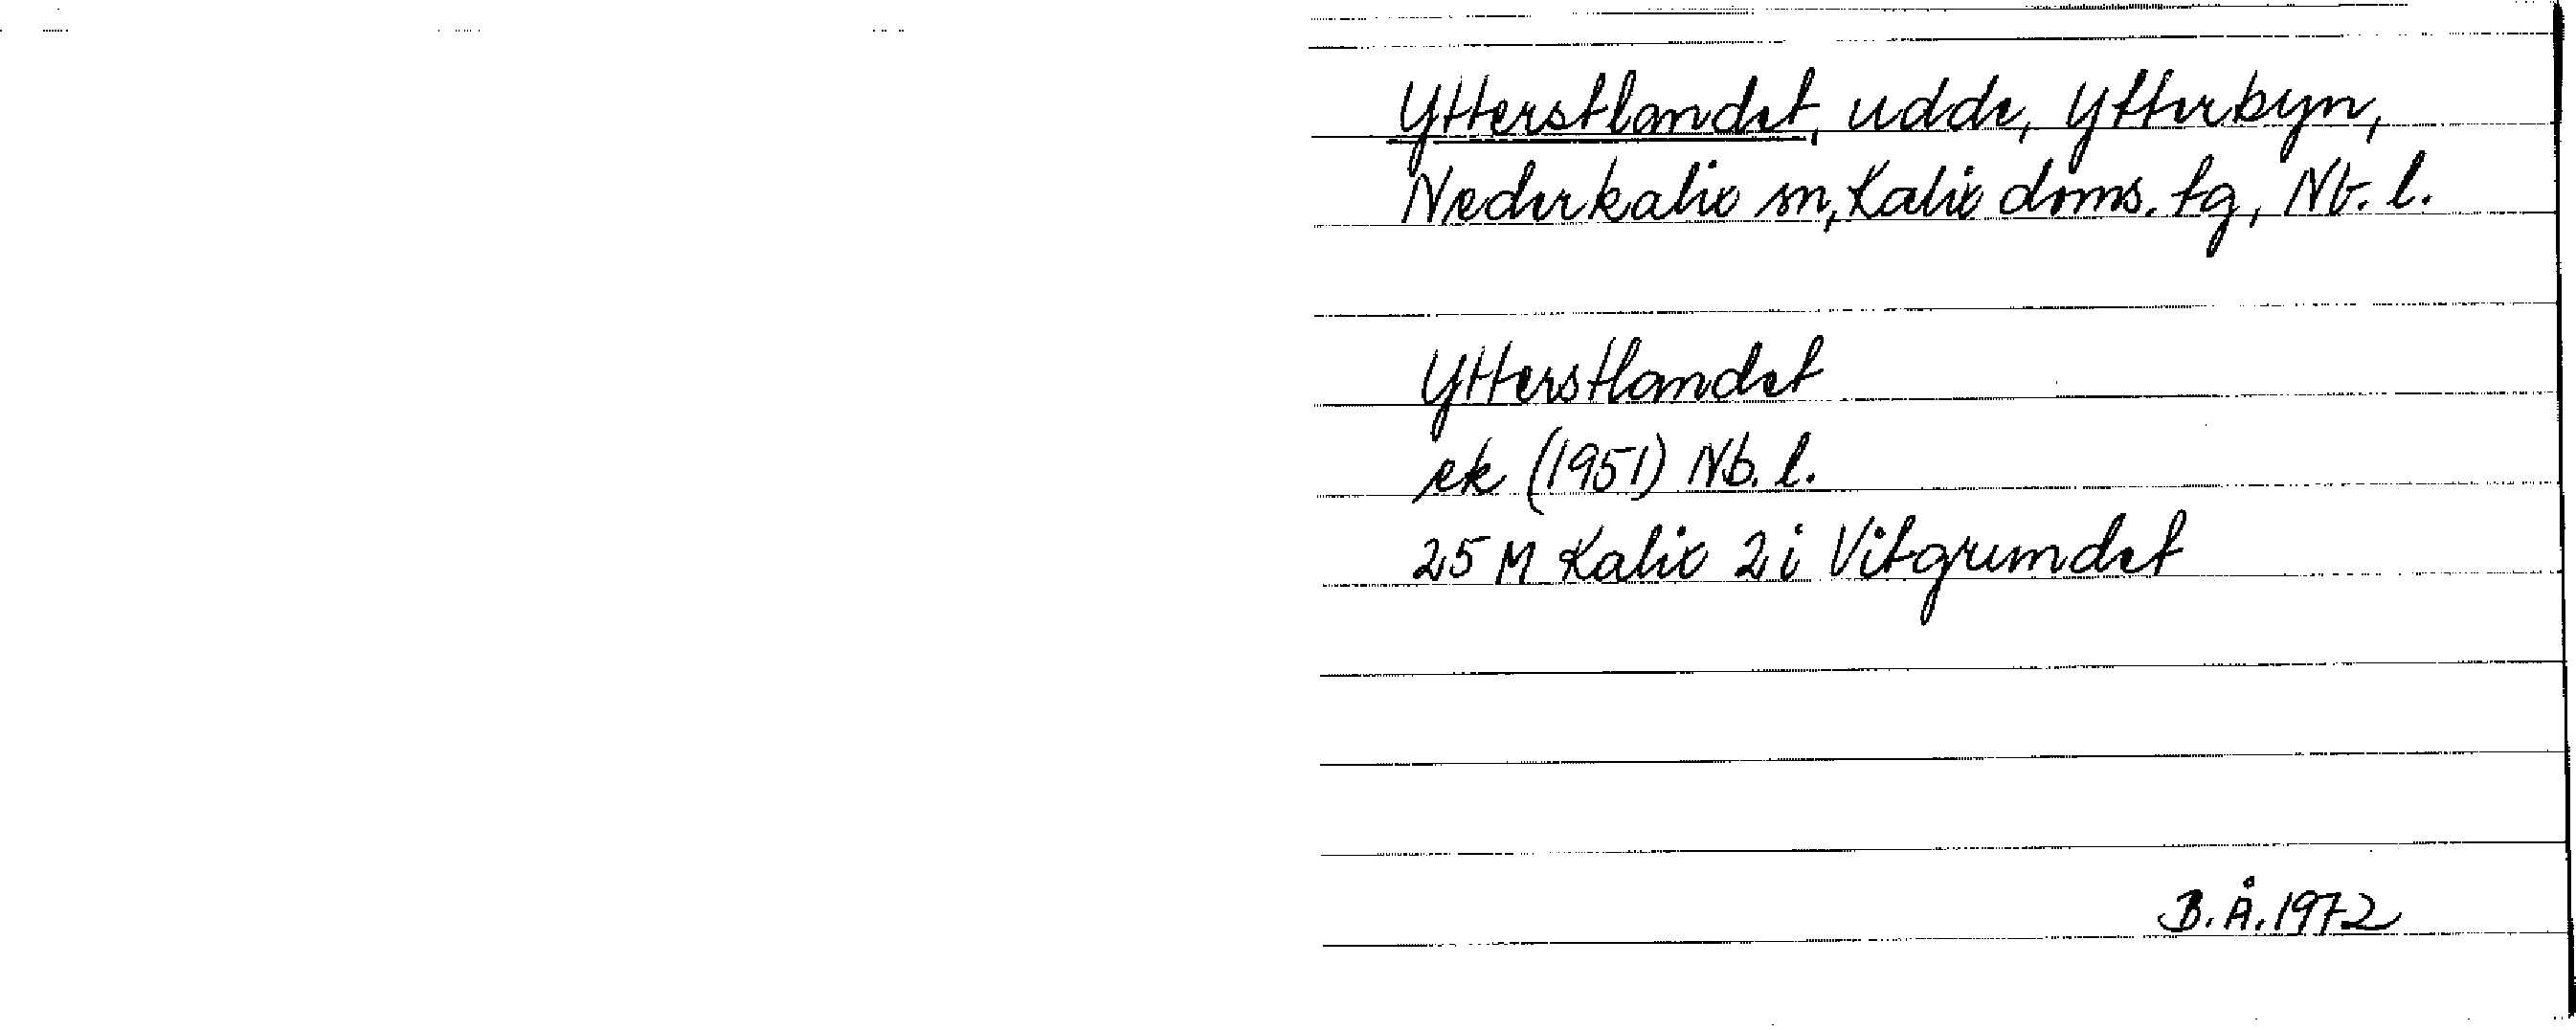 Ytterstlandet, udde, Ytterbyn,
Nederkalix sn, Kalix doms. tg, Nb. l.
Ytterstlandet
ek (1951) Nb. l.
25 M Kalix 2 i Vitgrundet
B. Å. 1972